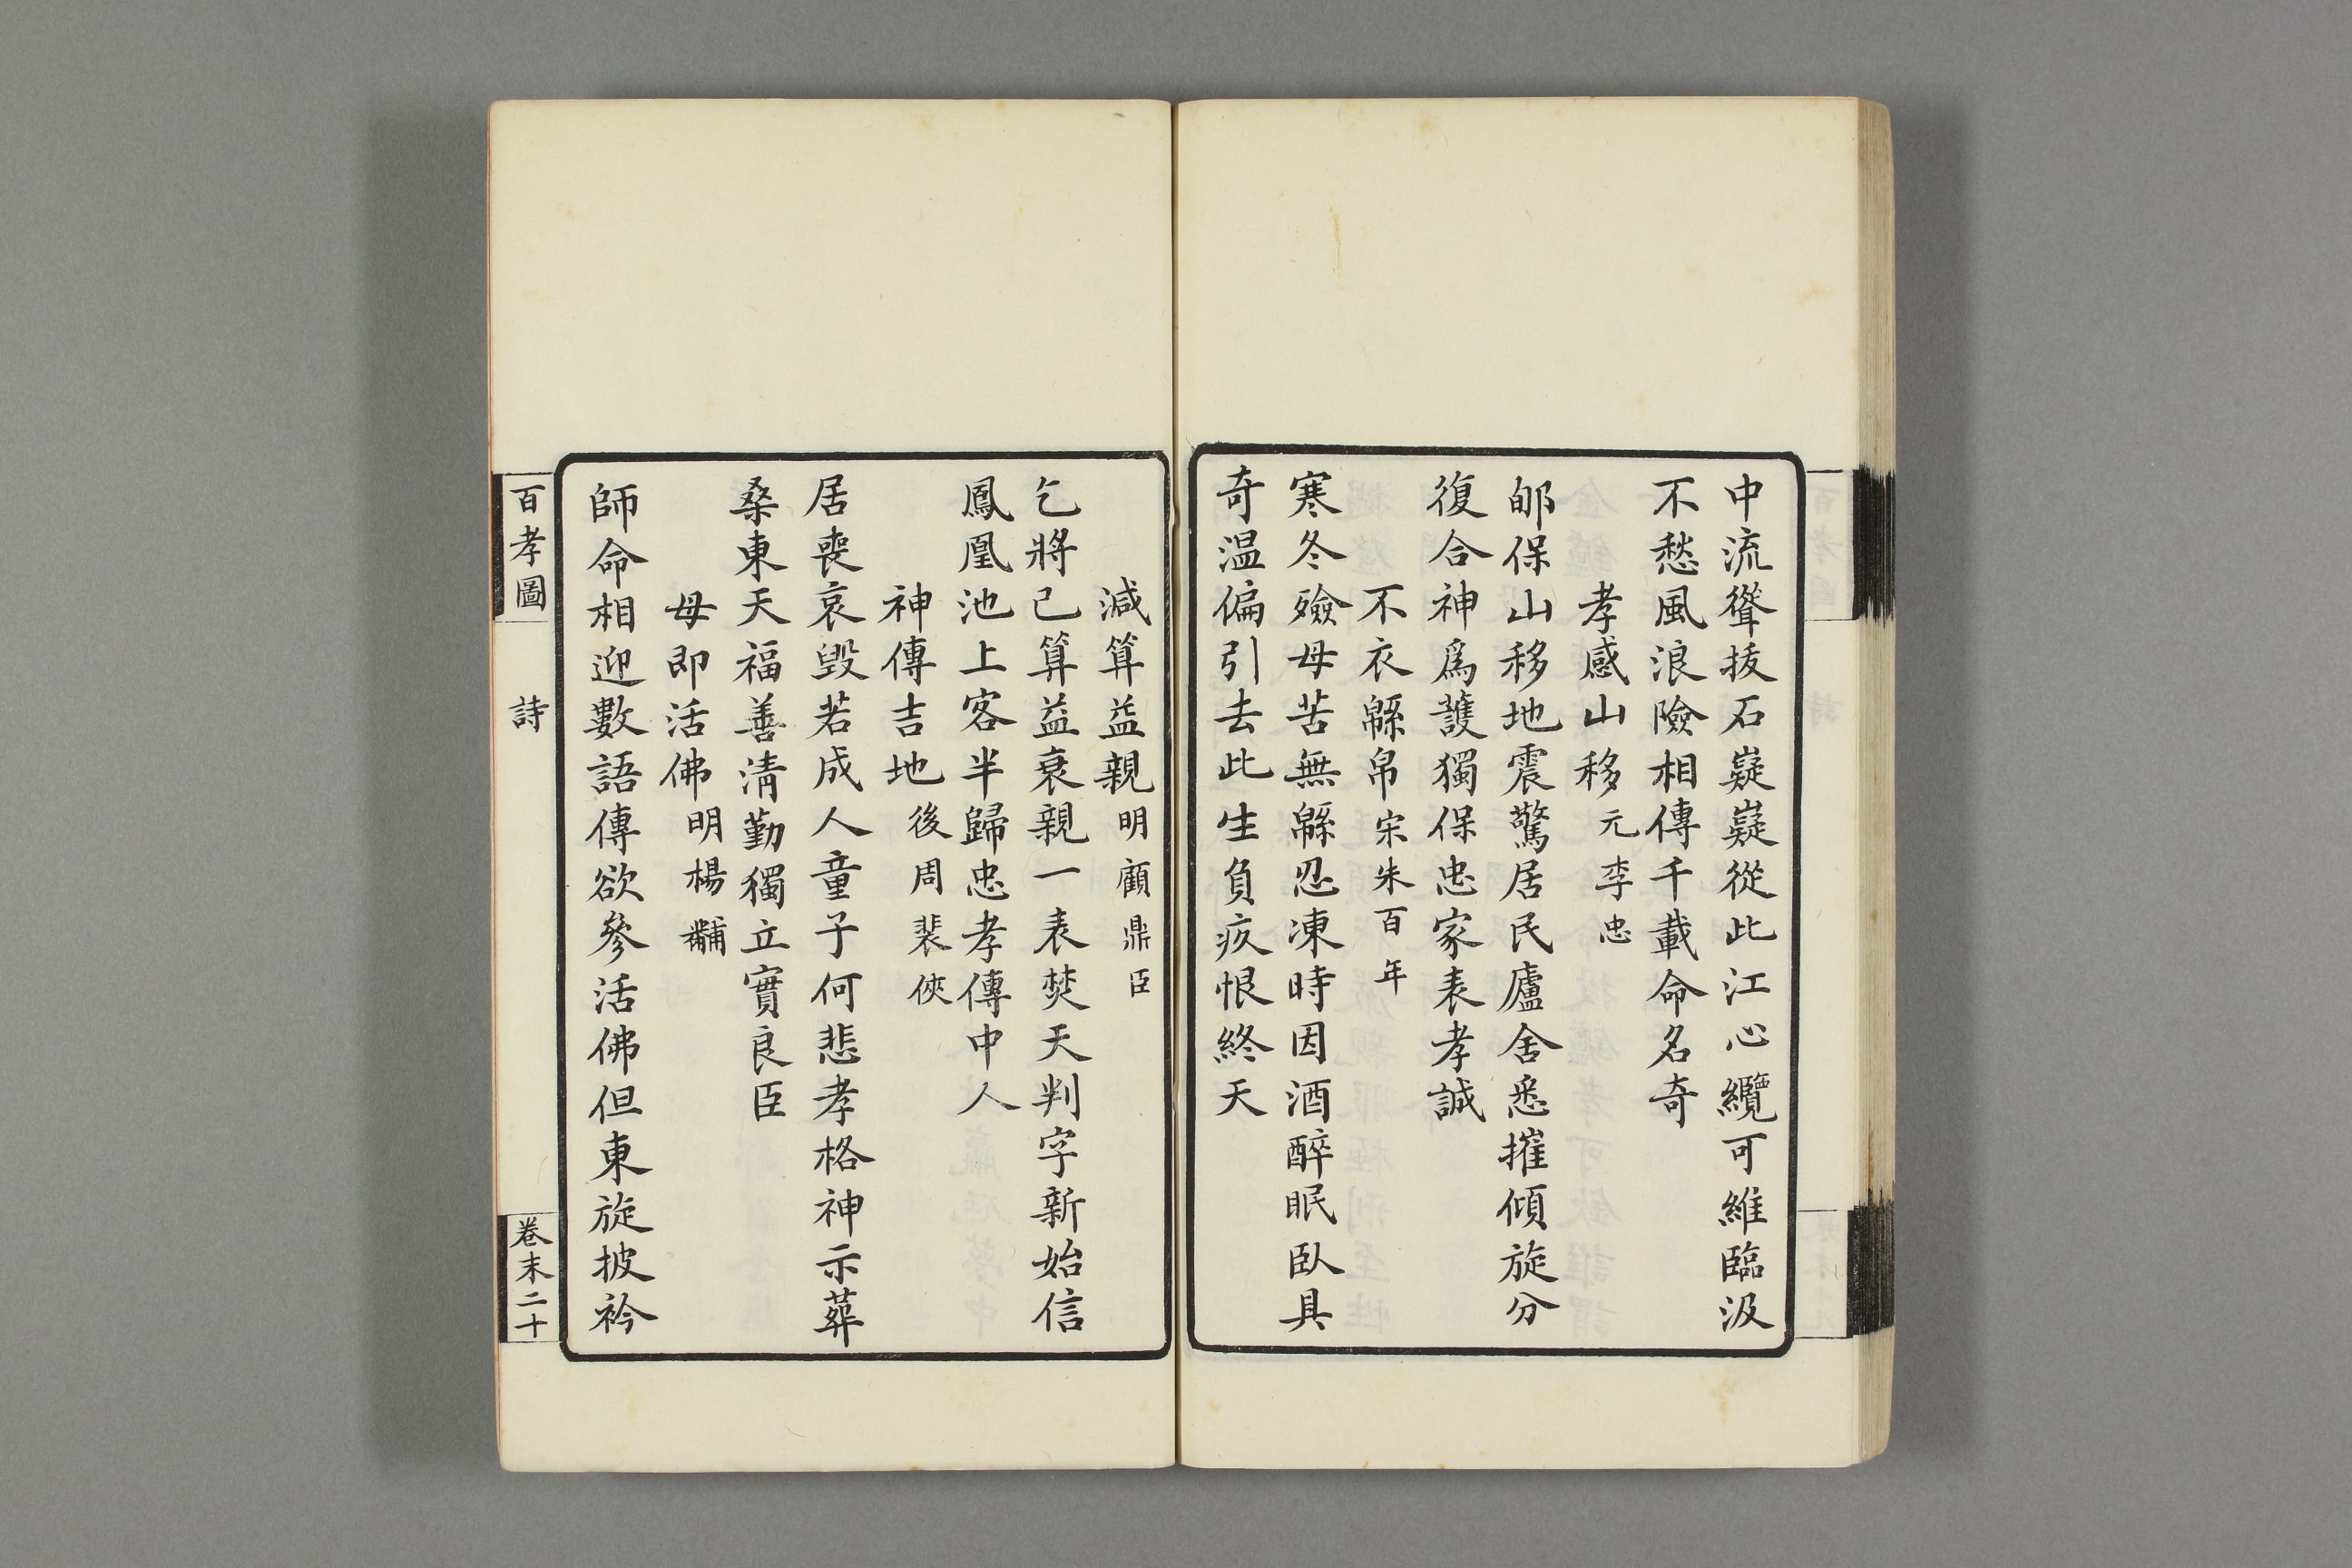 中流聳拔石嶷嶷從此江心纜可維臨汲
不愁風浪險相傳千載命名奇
孝感山移元李忠
郇保山移地震驚居民廬舍悉摧傾旋分
復合神爲護獨保忠家表孝誠
不衣緜帛宋朱百年
寒冬殮母苦無緜忍凍時因酒醉眠臥具
奇温偏引去此生負疚恨終天
減算益親明顧鼎臣
乞將己算益衰親一表焚天判字新始信
鳳凰池上客半歸忠孝傳中人
神傳吉地後周裴俠
居喪哀毁若成人童子何悲孝格神示葬
桑東天福善清勤獨立實良臣
母即活佛明楊黼
師命相迎數語傳欲參活佛但東旋披衿
百孝圖
詩
卷末二十